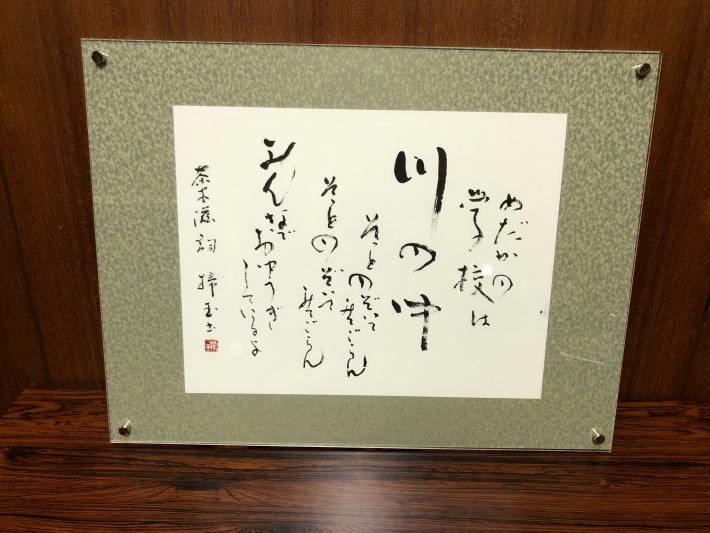 めだかの
学校は
川の中
そっとのぞいて
みてごらん
そっとのぞいて
みてごらん
みんなで
おゆうぎ
しているよ
茶木滋詞 掃玉書